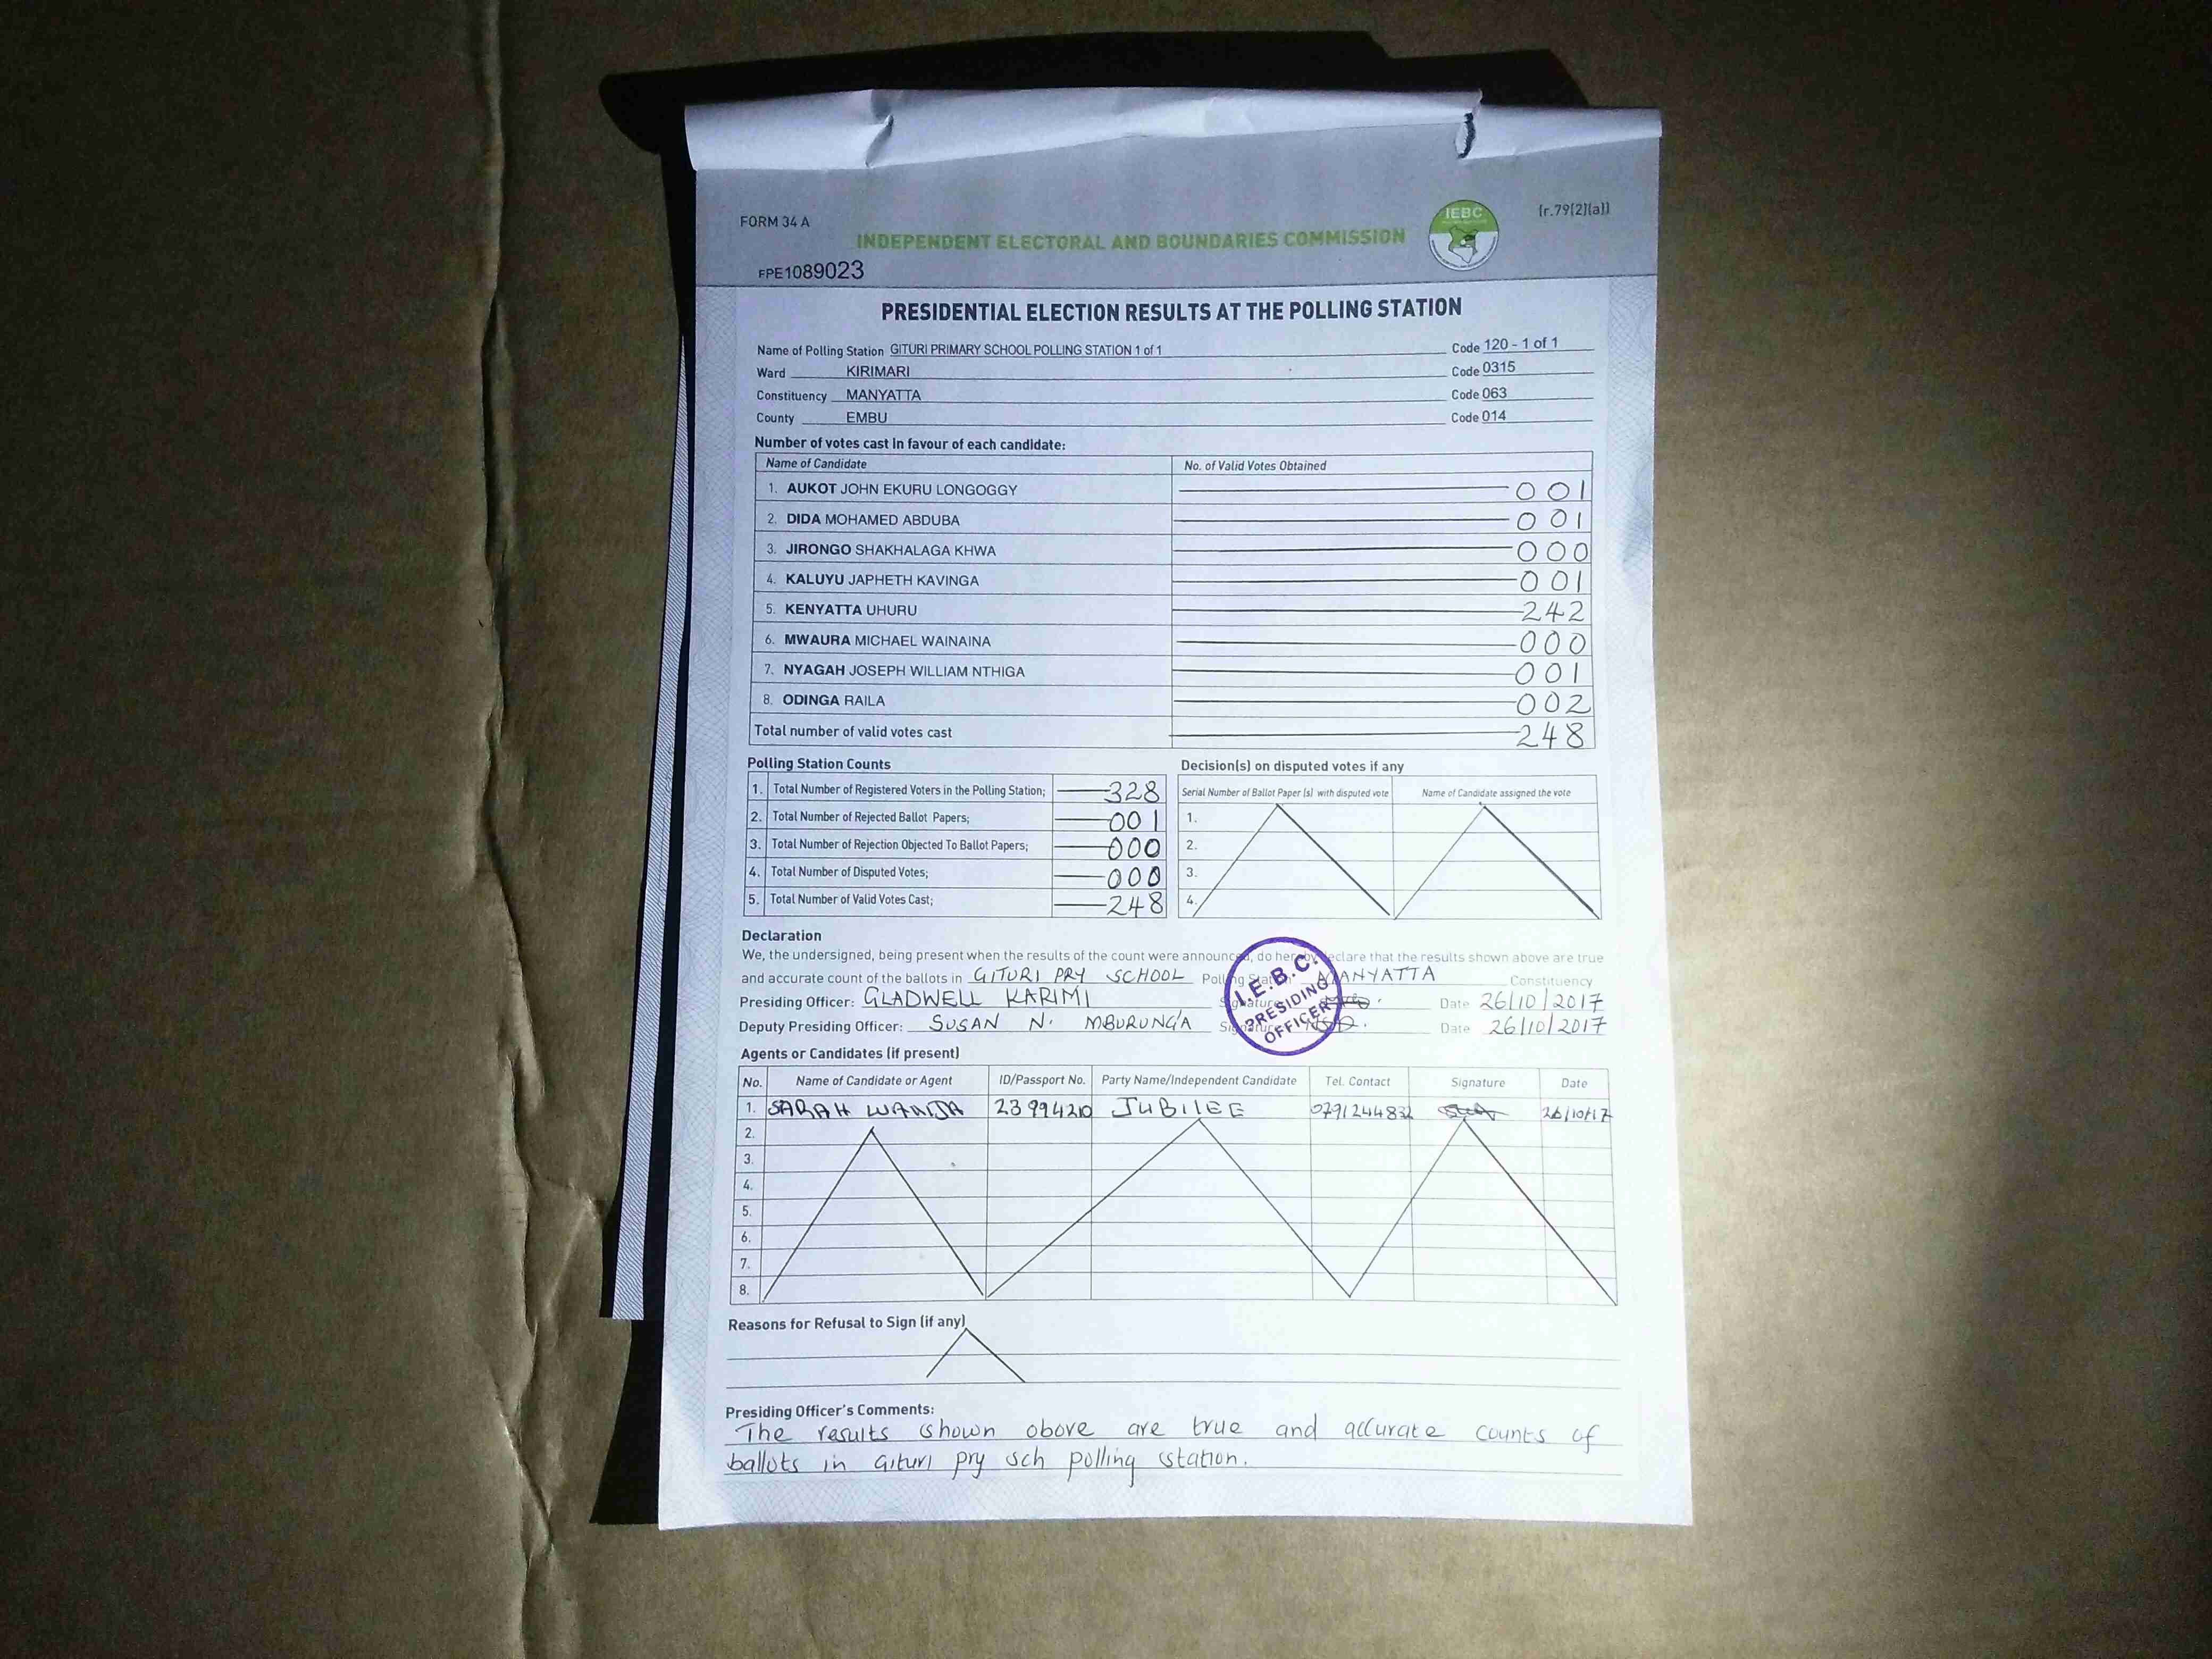 FORM 34 A
INDEPENDENT ELECTORAL AND BOUNDARIES COMMISSION
IEBC
(r.79(2)(a))
FPE1089023
PRESIDENTIAL ELECTION RESULTS AT THE POLLING STATION
Name of Polling Station GITURI PRIMARY SCHOOL POLLING STATION 1 of 1 Code 120 - 1 of 1
Ward KIRIMARI Code 0315
Constituency MANYATTA Code 063
County EMBU Code 014
Number of votes cast in favour of each candidate:
Name of Candidate No. of Valid Votes Obtained
1. AUKOT JOHN EKURU LONGOGGY 001
2. DIDA MOHAMED ABDUBA 001
3. JIRONGO SHAKHALAGA KHWA 000
4. KALUYU JAPHETH KAVINGA 001
5. KENYATTA UHURU 242
6. MWAURA MICHAEL WAINAINA 000
7. NYAGAH JOSEPH WILLIAM NTHIGA 001
8. ODINGA RAILA 002
Total number of valid votes cast 248
Polling Station Counts
1. Total Number of Registered Voters in the Polling Station; 328
2. Total Number of Rejected Ballot Papers; 001
3. Total Number of Rejection Objected To Ballot Papers; 000
4. Total Number of Disputed Votes; 000
5. Total Number of Valid Votes Cast; 248
Decision(s) on disputed votes if any
Serial Number of Ballot Paper (s) with disputed vote Name of Candidate assigned the vote
1.
2.
3.
4.
Declaration
We, the undersigned, being present when the results of the count were announced, do hereby declare that the results shown above are true
and accurate count of the ballots in GITURI PRY SCHOOL Polling Station MANYATTA Constituency
Presiding Officer: GLADWELL KARIMI Signature Date 26/10/2017
Deputy Presiding Officer: SUSAN N. MBURUNG'A Signature Date 26/10/2017
I.E.B.C.
PRESIDING
OFFICER
Agents or Candidates (if present)
No. Name of Candidate or Agent ID/Passport No. Party Name/Independent Candidate Tel. Contact Signature Date
1. SARAH WANJA 23994210 JUBILEE 0791244832 26/10/17
2.
3.
4.
5.
6.
7.
8.
Reasons for Refusal to Sign (if any)
Presiding Officer's Comments:
The results shown obove are true and accurate counts of
ballots in Gituri pry sch polling station.